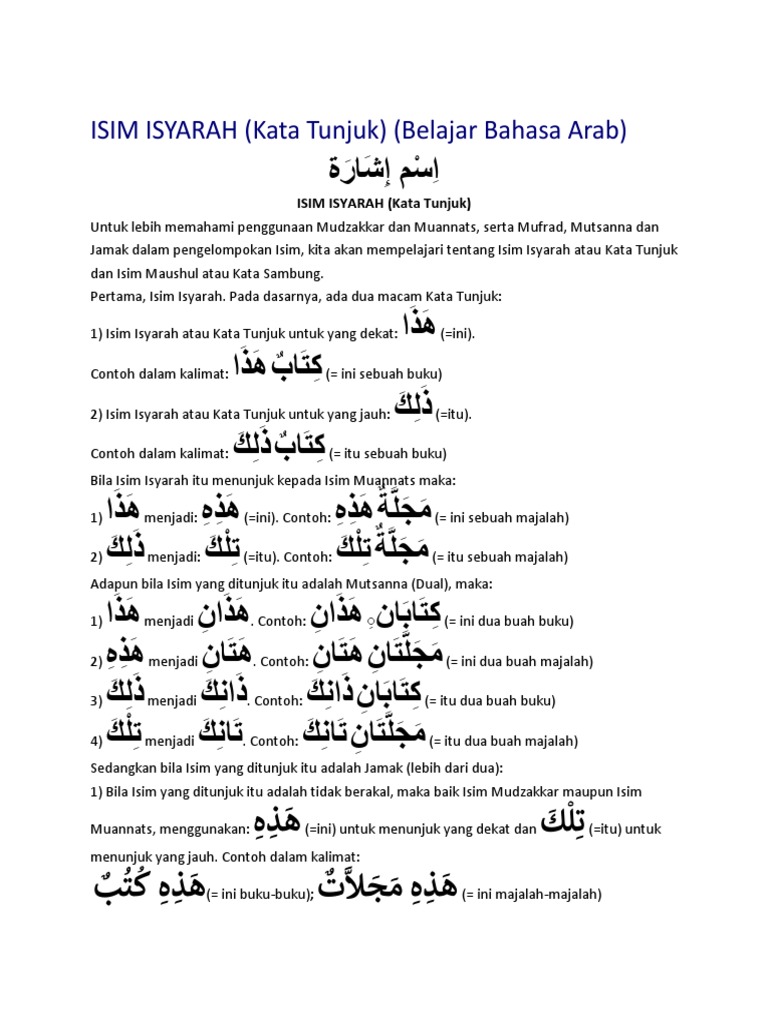 ISIM ISYARAH (Kata Tunjuk) (Belajar Bahasa Arab)
اِسْم إِشَارَة
ISIM ISYARAH (Kata Tunjuk)
Untuk lebih memahami penggunaan Mudzakkar dan Muannats, serta Mufrad, Mutsanna dan
Jamak dalam pengelompokan Isim, kita akan mempelajari tentang Isim Isyarah atau Kata Tunjuk
dan Isim Maushul atau Kata Sambung.
Pertama, Isim Isyarah. Pada dasarnya, ada dua macam Kata Tunjuk:
1) Isim Isyarah atau Kata Tunjuk untuk yang dekat: هَذَا (=ini).
Contoh dalam kalimat: كِتَابٌ هَذَا (= ini sebuah buku)
2) Isim Isyarah atau Kata Tunjuk untuk yang jauh: ذَلِكَ (=itu).
Contoh dalam kalimat: كِتَابٌ ذَلِكَ (= itu sebuah buku)
Bila Isim Isyarah itu menunjuk kepada Isim Muannats maka:
1) هَذَا menjadi: هَذِهِ (=ini). Contoh: مَجَلَّةٌ هَذِهِ (= ini sebuah majalah)
2) ذَلِكَ menjadi: تِلْكَ (=itu). Contoh: مَجَلَّةٌ تِلْكَ (= itu sebuah majalah)
Adapun bila Isim yang ditunjuk itu adalah Mutsanna (Dual), maka:
1) هَذَا menjadi هَذَانِ. Contoh: كِتَابَانِ هَذَانِ (= ini dua buah buku)
2) هَذِهِ menjadi هَتَانِ. Contoh: مَجَلَّتَانِ هَتَانِ (= ini dua buah majalah)
3) ذَلِكَ menjadi ذَانِكَ. Contoh: كِتَابَانِ ذَانِكَ (= itu dua buah buku)
4) تِلْكَ menjadi تَانِكَ. Contoh: مَجَلَّتَانِ تَانِكَ (= itu dua buah majalah)
Sedangkan bila Isim yang ditunjuk itu adalah Jamak (lebih dari dua):
1) Bila Isim yang ditunjuk itu adalah tidak berakal, maka baik Isim Mudzakkar maupun Isim
Muannats, menggunakan: هَذِهِ (=ini) untuk menunjuk yang dekat dan تِلْكَ (=itu) untuk
menunjuk yang jauh. Contoh dalam kalimat:
هَذِهِ كُتُبٌ (= ini buku-buku); هَذِهِ مَجَلاَّتٌ (= ini majalah-majalah)